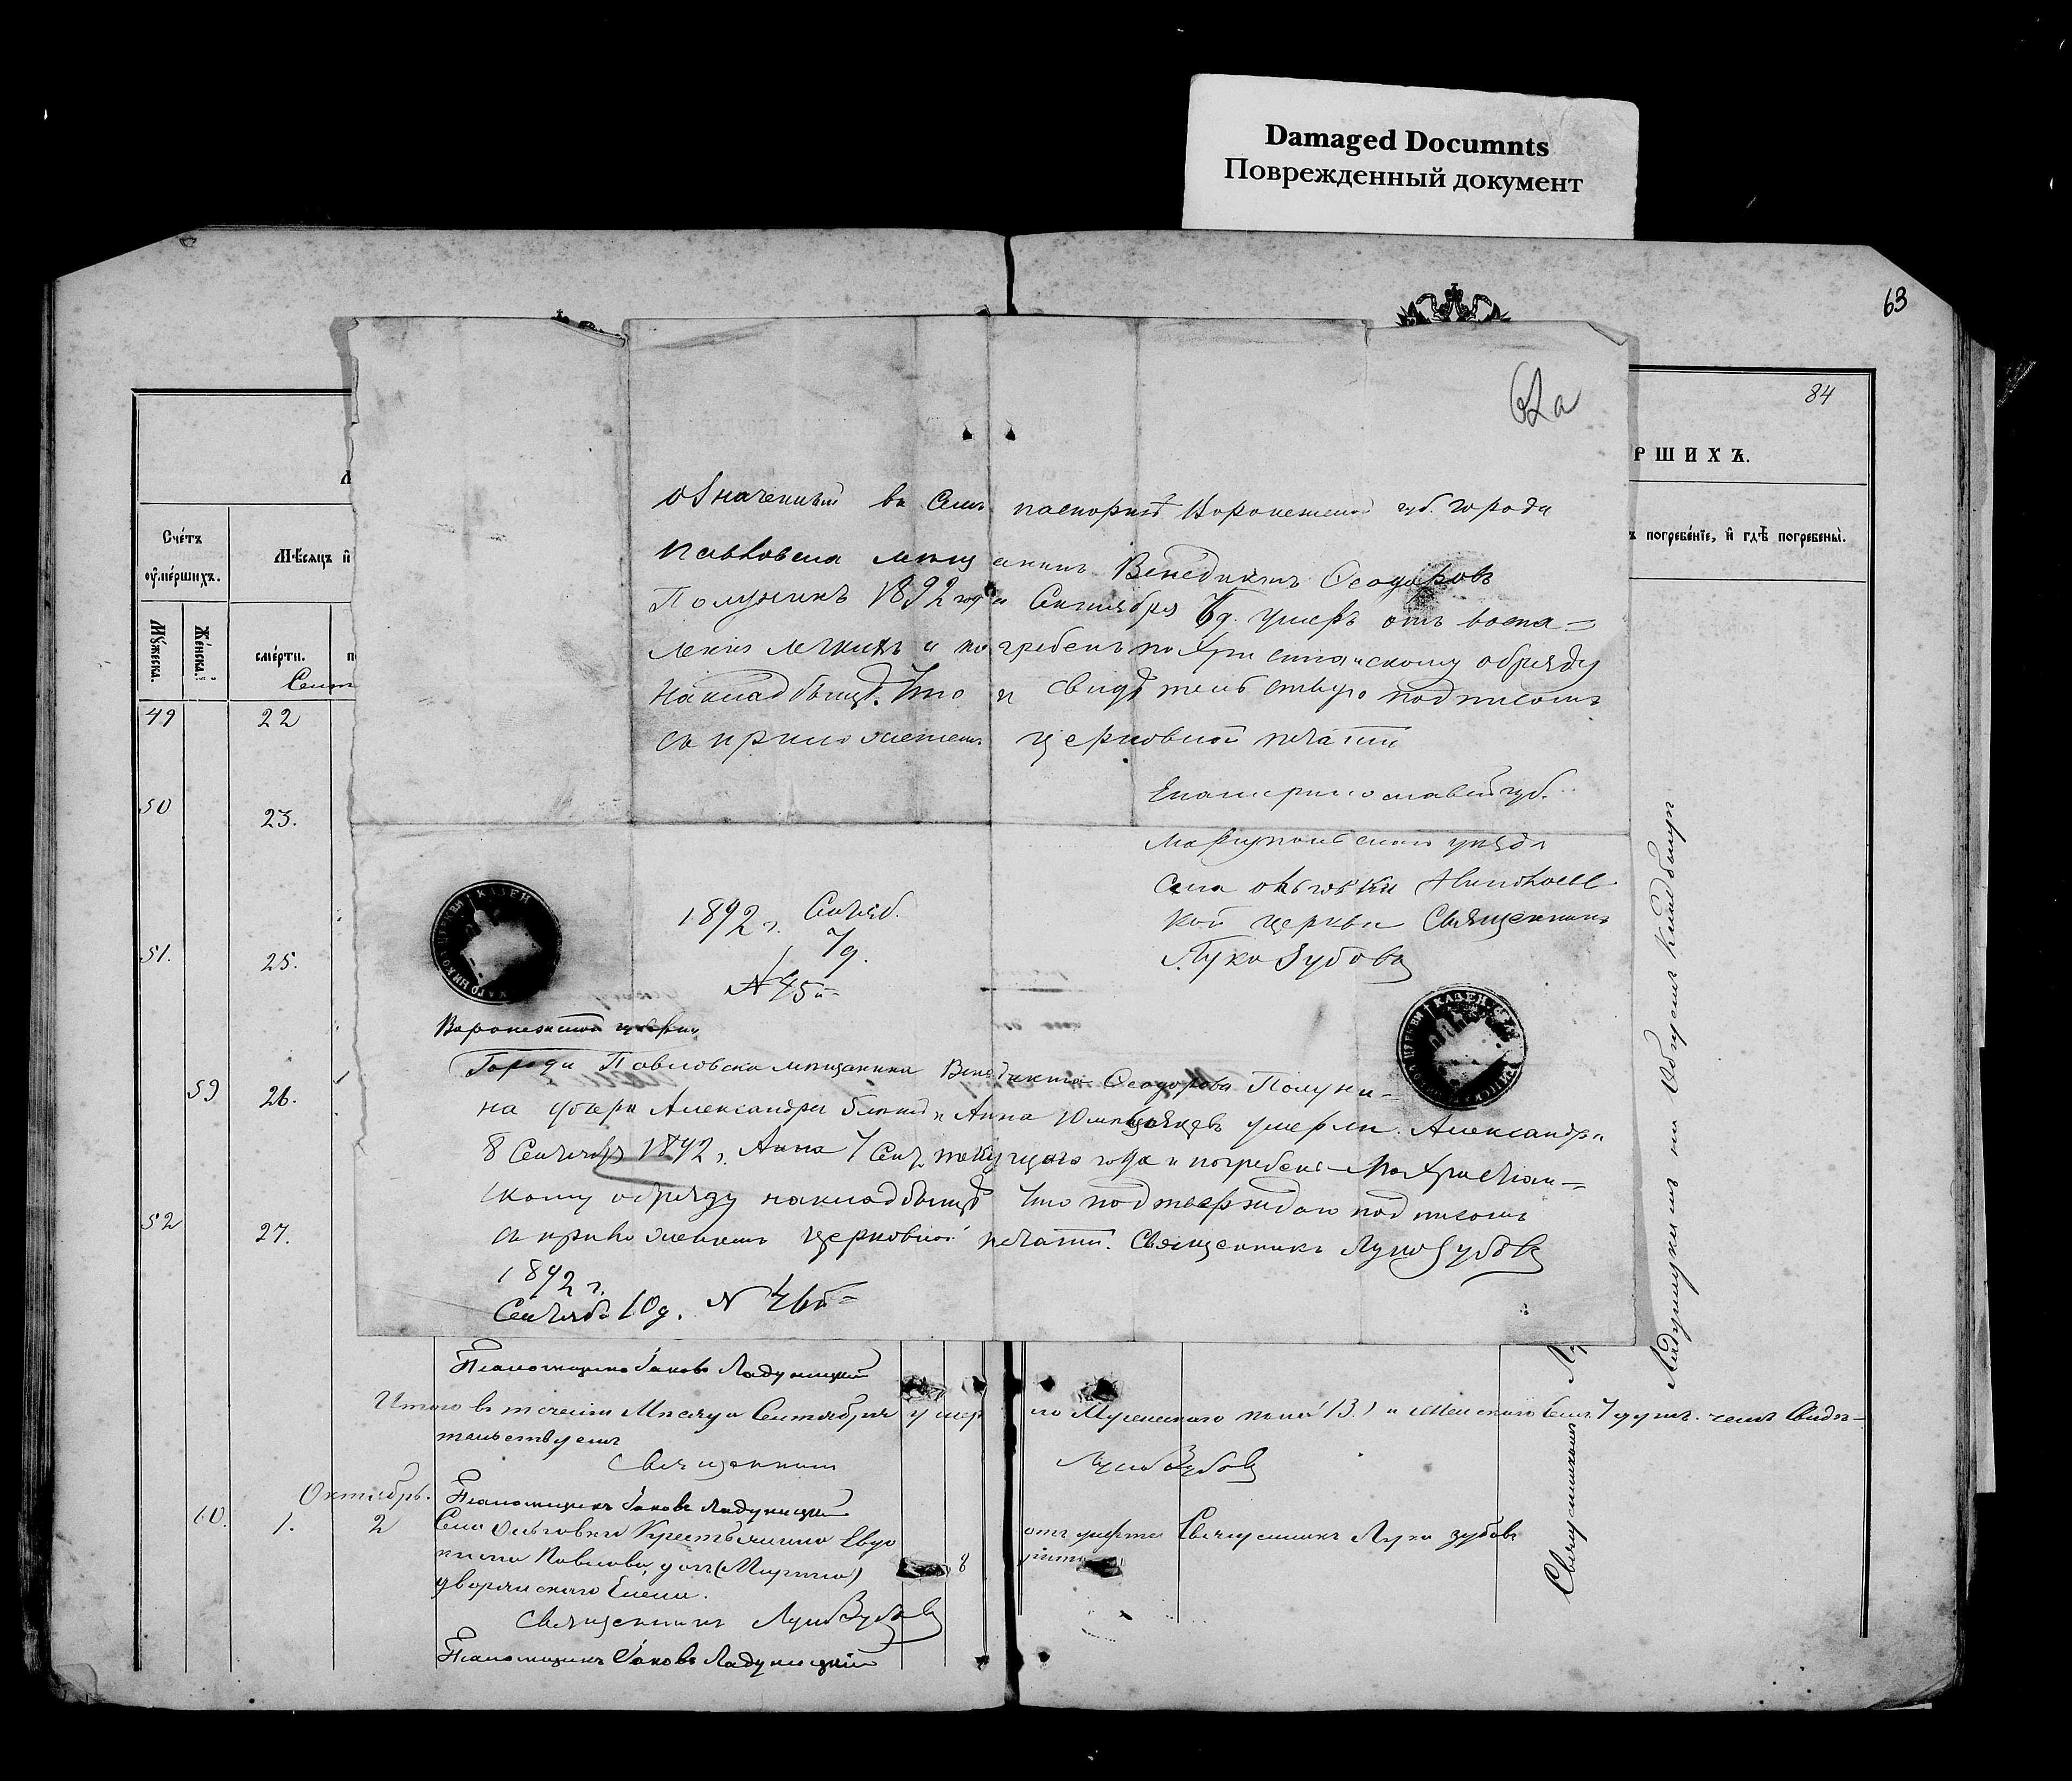 Damaged Documnts
Поврежденный документ
63
62а
84
РШИХЪ.
Счетъ
оумершихъ.
Мѣсяцъ и
ъ погребенїе, и гдѣ погребены.
Мужеска.
Женска.
смерти.
Сент
49 22
50 23.
51. 25.
59 26.
52 27.
Означенный въ семъ паспортѣ Воронежской губ. города
Павловска мещанинъ Венедиктъ Ѳеодоровъ
Полунинъ 1892 года Сентября 7 д. умеръ отъ воспа=
ленія легкихъ и погребенъ по Христіанскому обряду
на кладбищѣ. Что и свидѣтельствую подписомъ
съ приложеніемъ церковной печати
Екатеринославской губ.
Маріупольскаго уѣзда
села Ольгѣвки Николаевс
кой церкви Священникъ
Лука Зубовъ
1892 г. Сентяб.
7 д.
№ 45й=
Воронежской губерніи
Города Павловска мещанина Венедикта Ѳеодорова Полуни=
на дочери Александра и Анна умерли. Александра
8 Сентября 1892 г. Анна 7 Сент. текущаго года и погребены По Христіан=
скому обряду на кладбищѣ Что подтверждаю подписомъ
съ приложеніемъ церковной печати. Священникъ Лука Зубовъ
1892 г.
Сентяб. 10 д. № 46й=
Псаломщикъ Іаковъ Ладухицкій
Итого въ теченіи Мѣсяца Сентября умер ло Мужескаго пола (13.) и Женскаго 7 душъ. чемъ Свидѣ=
тельствуемъ
Священникъ Лука Зубовъ
Октябрь. Псаломщикъ Іаковъ Ладухицкій
60. 1. 2 Села Ольговки Крестьянина Евдо
кима Павлова, доч 8 отъ Священникъ Лука Зубовъ
дворянского Елена.
Священникъ Лука Зубовъ
Псаломщикъ Іаковъ Ладухицкій
Священникомъ
на Общемъ Кладбищѣ